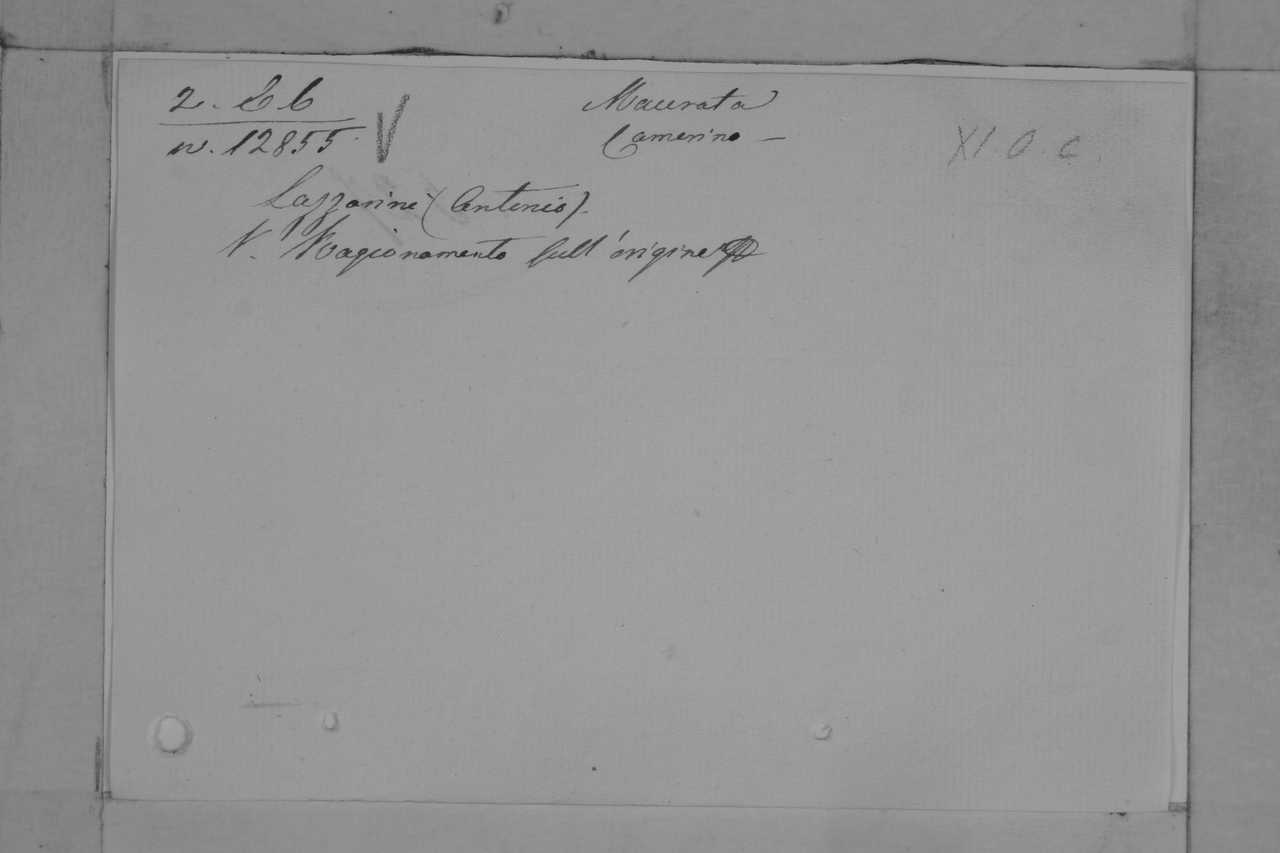 2. L b
n. 12855. V
Macerata
Camerino —
XI. O. c.
Lazzarini (Antonio).
V. Ragionamento sull'origine